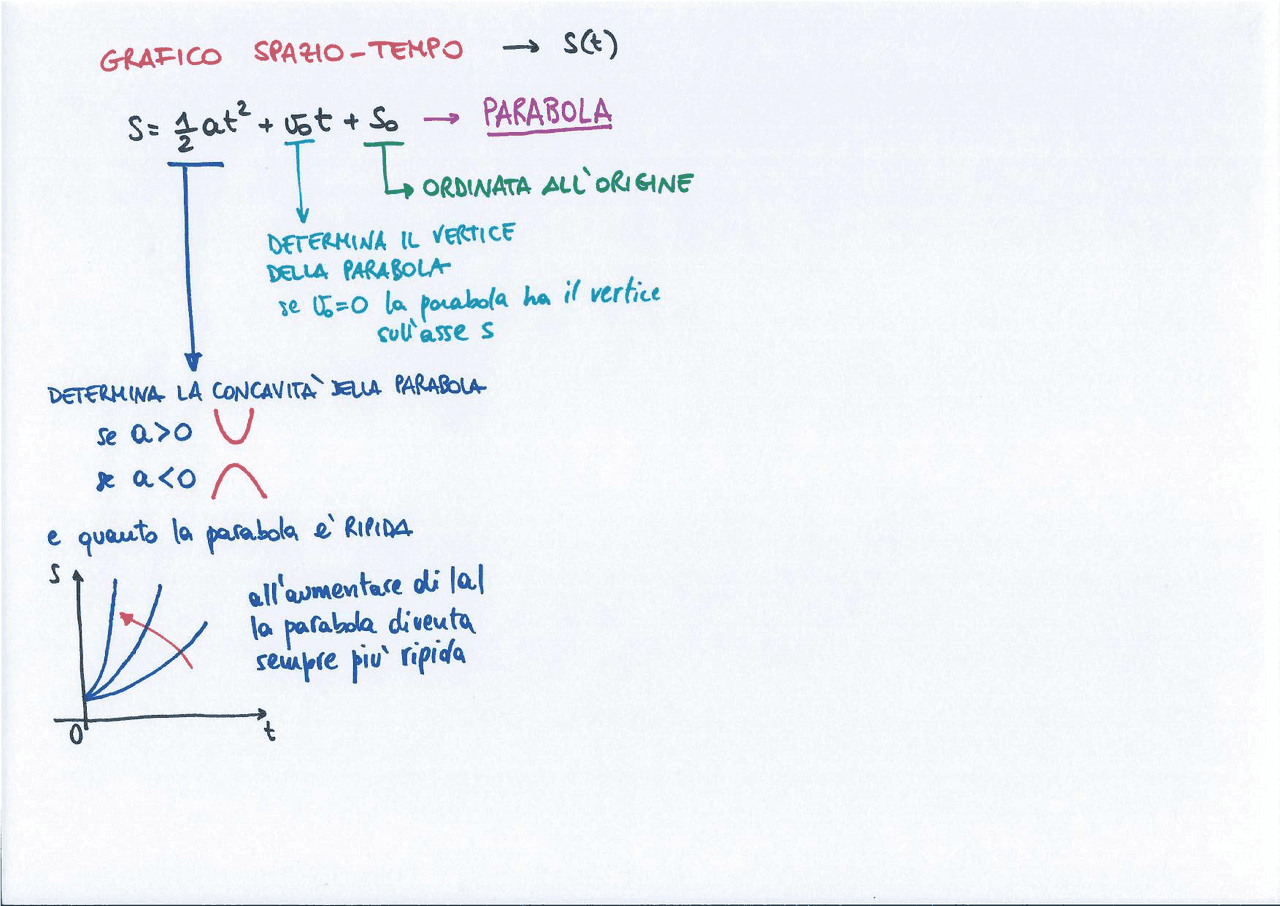 GRAFICO SPAZIO-TEMPO → S(t)
S = 1/2 at² + v₀t + S₀ → PARABOLA
ORDINATA ALL'ORIGINE
DETERMINA IL VERTICE
DELLA PARABOLA
se v₀=0 la parabola ha il vertice
sull'asse S
DETERMINA LA CONCAVITA' DELLA PARABOLA
se a>0
se a<0
e quanto la parabola e' RIPIDA
S
all'aumentare di |a|
la parabola diventa
sempre piu' ripida
0
t